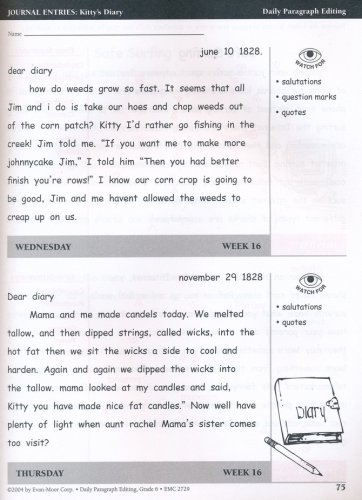 JOURNAL ENTRIES: Kitty's Diary Daily Paragraph Editing
Name
june 10 1828.
WATCH FOR
• salutations
• question marks
• quotes
dear diary
how do weeds grow so fast. It seems that all
Jim and i do is take our hoes and chop weeds out
of the corn patch? Kitty I'd rather go fishing in the
creek! Jim told me. "If you want me to make more
johnnycake Jim," I told him "Then you had better
finish you're rows!" I know our corn crop is going to
be good, Jim and me havent allowed the weeds to
creap up on us.
WEDNESDAY WEEK 16
november 29 1828
WATCH FOR
• salutations
• quotes
Dear diary
Mama and me made candels today. We melted
tallow, and then dipped strings, called wicks, into the
hot fat then we sit the wicks a side to cool and
harden. Again and again we dipped the wicks into
the tallow. mama looked at my candles and said,
Kitty you have made nice fat candles." Now well have
plenty of light when aunt rachel Mama's sister comes
too visit?
DIARY
THURSDAY WEEK 16
©2004 by Evan-Moor Corp. • Daily Paragraph Editing, Grade 6 • EMC 2729 75